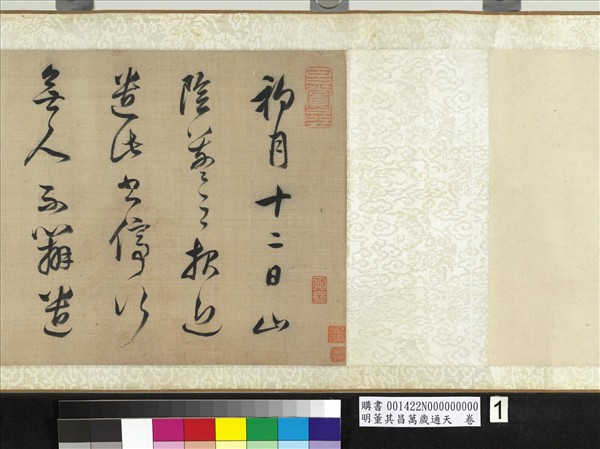 初月十二日山
陰羲之報近
遣此書停行
無人不辦遣
購書 001422N000000000
明董其昌萬歲通天 卷
1